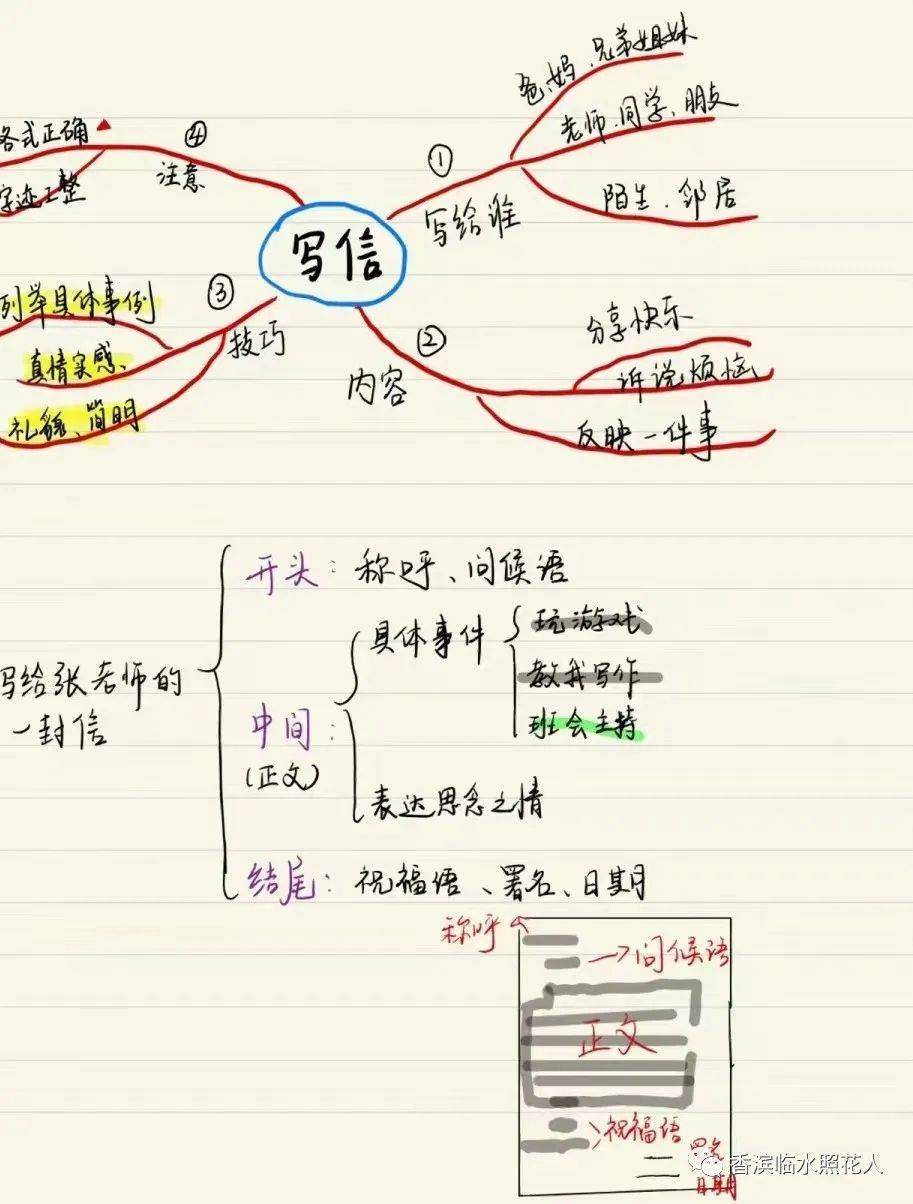 写信
①
写给谁
爸、妈、兄弟姐妹
老师、同学、朋友
陌生、邻居
②
内容
分享快乐
诉说烦恼
反映一件事
③
技巧
列举具体事例
真情实感、
礼貌、简明
④
注意
各式正确
字迹工整
写给张老师的
一封信
开头：称呼、问候语
中间：
(正文)
具体事件
玩游戏
教我写作
班会主持
表达思念之情
结尾：祝福语、署名、日期
称呼
问候语
正文
祝福语
署名
日期
香滨临水照花人